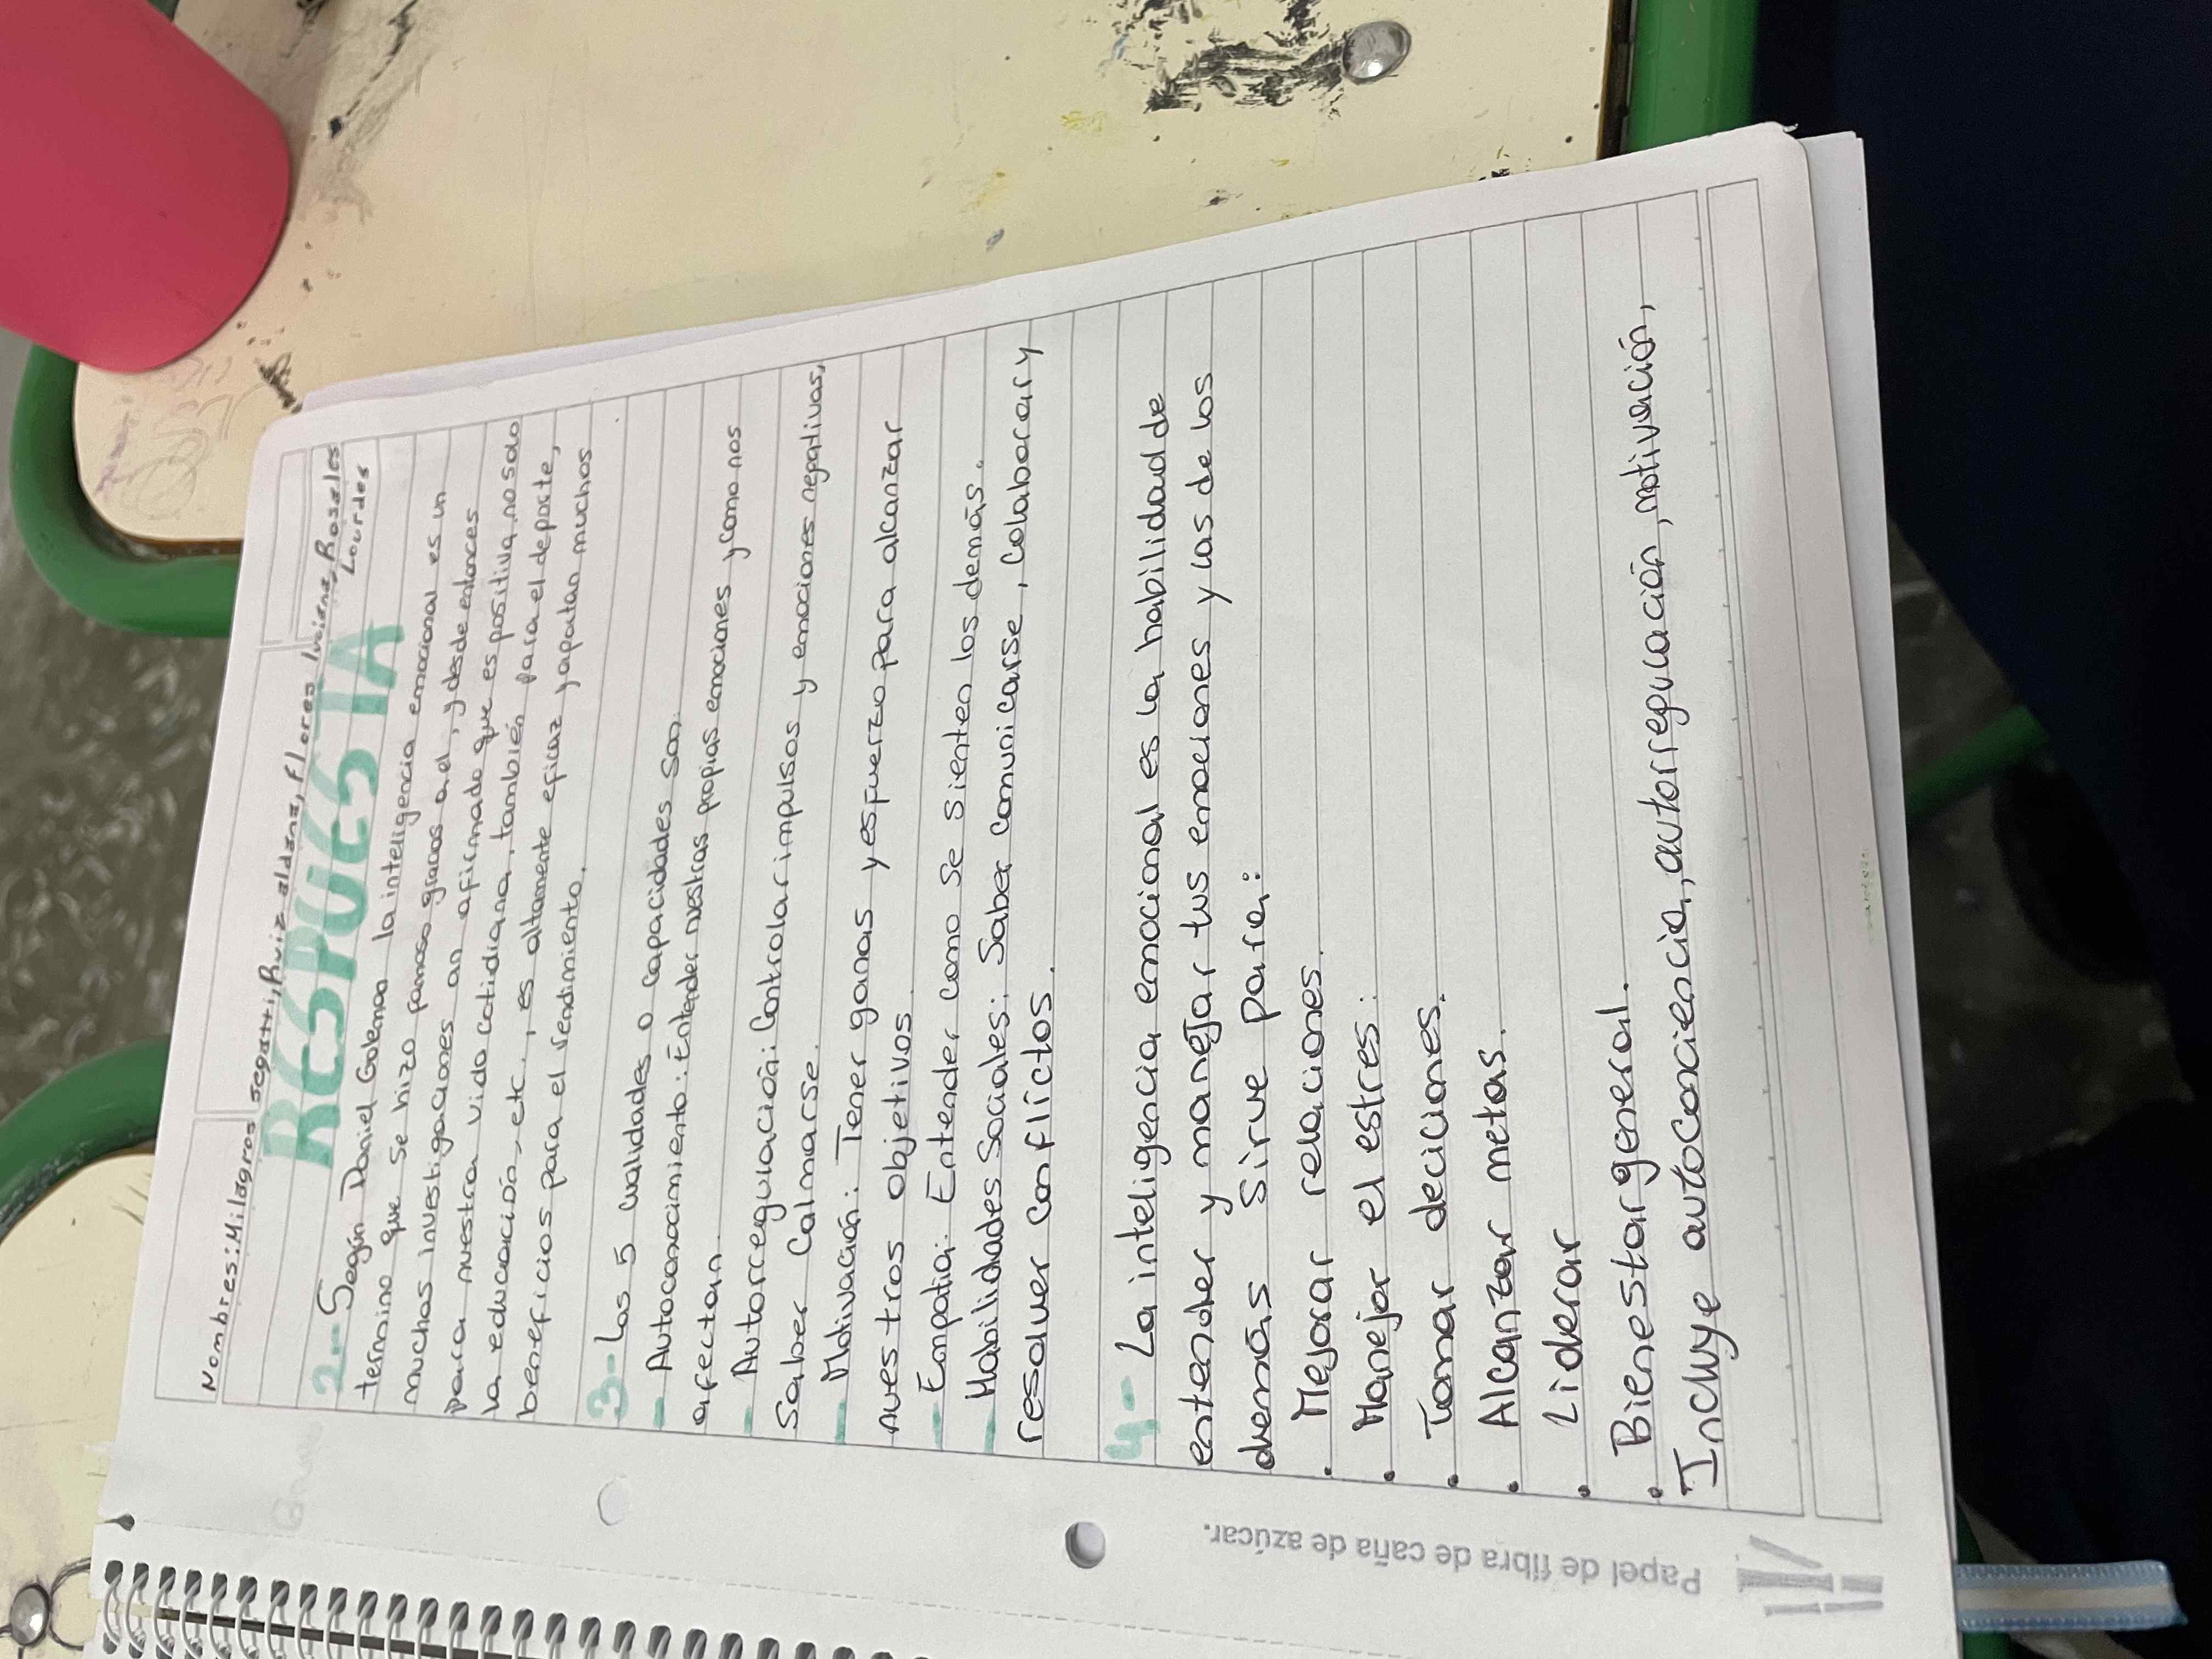 Nombres: Milagros Segatti, Ruiz aldana, Flores luciana, Rosales
Lourdes
RESPUESTA
2-- Según Daniel Goleman la inteligencia emocional es un
termino que se hizo famoso gracias a el, y desde entonces
muchas investigaciones an afirmado que es positiva, no solo
para nuestra vida cotidiana, también para el deporte,
la educación, etc., es altamente eficaz y aportan muchos
beneficios para el rendimiento.
3- Las 5 cualidades o capacidades son:
- Autoconocimiento: Entender nuestras propias emociones y como nos
afectan.
- Autorregulación: Controlar impulsos y emociones negativas,
Saber Calmarse.
- Motivación: Tener ganas y esfuerzo para alcanzar
nuestros objetivos.
- Empatia: Entender como se sienten los demás.
- Habilidades Sociales: Saber comunicarse, Colaborar y
resolver conflictos.
4- La inteligencia emocional es la habilidad de
entender y manejar tus emociones y las de los
demás Sirve para:
• Mejorar relaciones.
• Manejar el estres:
• Tomar deciciones.
• Alcanzar metas.
• Liderar
• Bienestar general.
Incluye autoconciencia, autorregulación, motivación,
Papel de fibra de caña de azúcar.